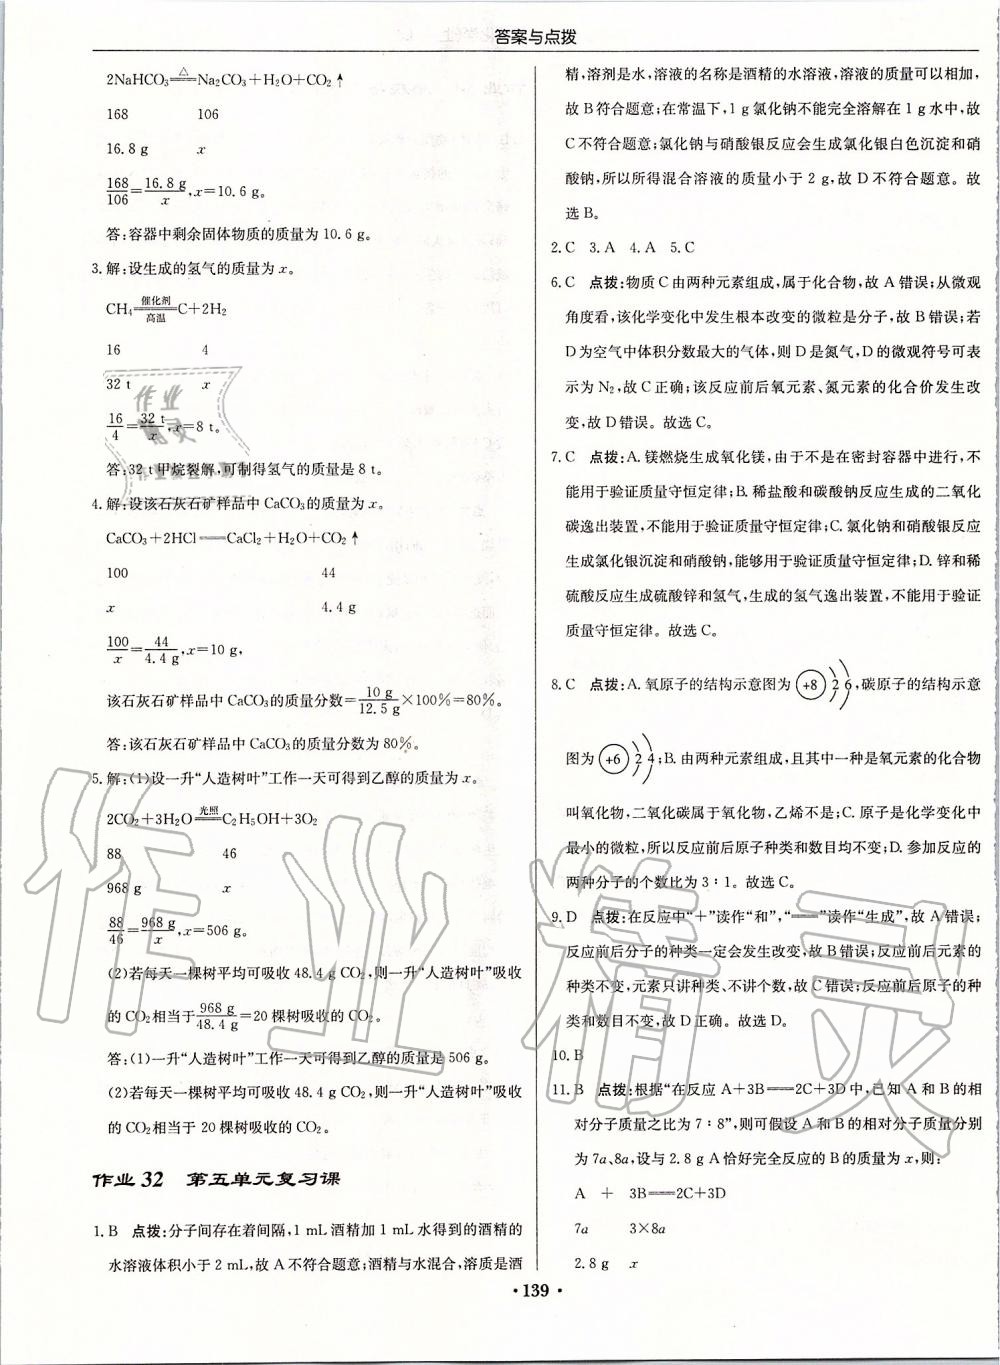 答案与点拨
2NaHCO₃ =△= Na₂CO₃+H₂O+CO₂↑
168 106
16.8 g x
168/106=16.8 g/x,x=10.6 g。
答:容器中剩余固体物质的质量为 10.6 g。
3. 解:设生成的氢气的质量为 x。
CH₄ =催化剂/高温= C+2H₂
16 4
32 t x
16/4=32 t/x,x=8 t。
答:32 t 甲烷裂解,可制得氢气的质量是 8 t。
4. 解:设该石灰石矿样品中 CaCO₃的质量为 x。
CaCO₃+2HCl══CaCl₂+H₂O+CO₂↑
100 44
x 4.4 g
100/x=44/4.4 g,x=10 g,
该石灰石矿样品中 CaCO₃的质量分数=10 g/12.5 g×100%=80%。
答:该石灰石矿样品中 CaCO₃的质量分数为 80%。
5. 解:(1)设一升“人造树叶”工作一天可得到乙醇的质量为 x。
2CO₂+3H₂O =光照= C₂H₅OH+3O₂
88 46
968 g x
88/46=968 g/x,x=506 g。
(2)若每天一棵树平均可吸收 48.4 g CO₂,则一升“人造树叶”吸收
的 CO₂相当于968 g/48.4 g=20 棵树吸收的 CO₂。
答:(1)一升“人造树叶”工作一天可得到乙醇的质量是 506 g。
(2)若每天一棵树平均可吸收 48.4 g CO₂,则一升“人造树叶”吸收
的 CO₂相当于 20 棵树吸收的 CO₂。
作业 32 第五单元复习课
1. B 点拨:分子间存在着间隔,1 mL 酒精加 1 mL 水得到的酒精的
水溶液体积小于 2 mL,故 A 不符合题意;酒精与水混合,溶质是酒
精,溶剂是水,溶液的名称是酒精的水溶液,溶液的质量可以相加,
故 B 符合题意;在常温下,1 g 氯化钠不能完全溶解在 1 g 水中,故
C 不符合题意;氯化钠与硝酸银反应会生成氯化银白色沉淀和硝
酸钠,所以所得混合溶液的质量小于 2 g,故 D 不符合题意。故
选 B。
2. C 3. A 4. A 5. C
6. C 点拨:物质 C 由两种元素组成,属于化合物,故 A 错误;从微观
角度看,该化学变化中发生根本改变的微粒是分子,故 B 错误;若
D 为空气中体积分数最大的气体,则 D 是氮气,D 的微观符号可表
示为 N₂,故 C 正确;该反应前后氧元素、氮元素的化合价发生改
变,故 D 错误。故选 C。
7. C 点拨:A. 镁燃烧生成氧化镁,由于不是在密封容器中进行,不
能用于验证质量守恒定律;B. 稀盐酸和碳酸钠反应生成的二氧化
碳逸出装置,不能用于验证质量守恒定律;C. 氯化钠和硝酸银反应
生成氯化银沉淀和硝酸钠,能够用于验证质量守恒定律;D. 锌和稀
硫酸反应生成硫酸锌和氢气,生成的氢气逸出装置,不能用于验证
质量守恒定律。故选 C。
8. C 点拨:A. 氧原子的结构示意图为 +8 2 6,碳原子的结构示意
图为 +6 2 4;B. 由两种元素组成,且其中一种是氧元素的化合物
叫氧化物,二氧化碳属于氧化物,乙烯不是;C. 原子是化学变化中
最小的微粒,所以反应前后原子种类和数目均不变;D. 参加反应的
两种分子的个数比为 3∶1。故选 C。
9. D 点拨:在反应中“+”读作“和”,“══”读作“生成”,故 A 错误;
反应前后分子的种类一定会发生改变,故 B 错误;反应前后元素的
种类不变,元素只讲种类、不讲个数,故 C 错误;反应前后原子的种
类和数目不变,故 D 正确。故选 D。
10. B
11. B 点拨:根据“在反应 A+3B══2C+3D 中,已知 A 和 B 的相
对分子质量之比为 7∶8”,则可假设 A 和 B 的相对分子质量分别
为 7a、8a,设与 2.8 g A 恰好完全反应的 B 的质量为 x,则:
A + 3B══2C+3D
7a 3×8a
2.8 g x
· 139 ·
作业精灵
作业
精灵